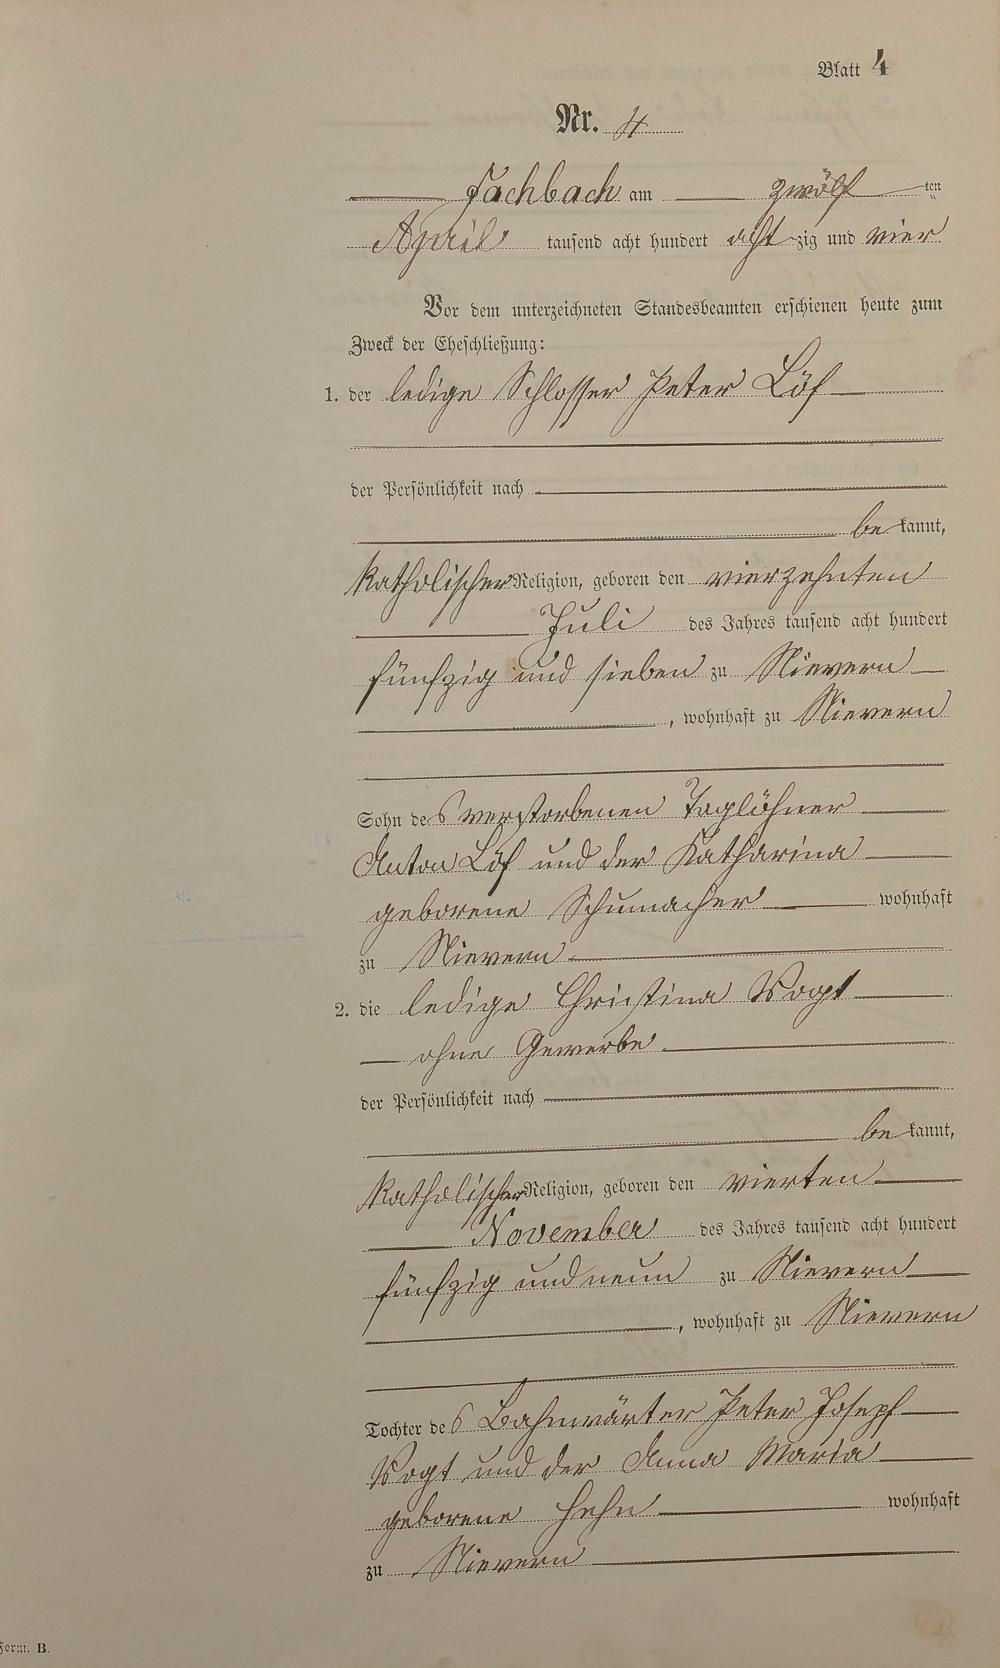 Blatt 4
Nr. 4
Fachbach am zwölf ten
April tausend acht hundert acht zig und vier
Vor dem unterzeichneten Standesbeamten erschienen heute zum
Zweck der Eheschließung:
1. der ledige Schlosser Peter Löf
der Persönlichkeit nach
be kannt,
katholischer Religion, geboren den vierzehnten
Juli des Jahres tausend acht hundert
fünfzig und sieben zu Nievern
, wohnhaft zu Nievern
Sohn des verstorbenen Taglöhner
Anton Löf und der Katharina
geborene Schumacher wohnhaft
zu Nievern
2. die ledige Christina Vogt
ohne Gewerbe
der Persönlichkeit nach
be kannt,
katholischer Religion, geboren den vierten
November des Jahres tausend acht hundert
fünfzig und neun zu Nievern
, wohnhaft zu Nievern
Tochter des Bahnwärter Peter Josepf
Vogt und der Anna Maria
geborene Hehn wohnhaft
zu Nievern
Form. B.